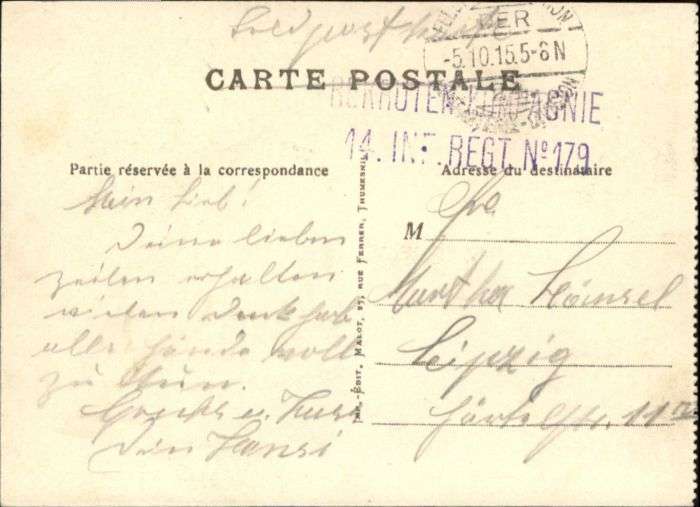 Feldpostkarte
-5.10.15.5-6N
CARTE POSTALE
REKRUTEN-KOMPAGNIE
14. INF. REGT. No 179
Partie réservée à la correspondance
Adresse du destinataire
Mein Lieb!
Deine lieben
Zeilen erhalten
vielen Dank hab
alle Hände voll
zu thun.
Gruß u. Kuss
Dein Hansi
IMP.-ÉDIT. MALOT, 27, RUE FERRER, THUMESNIL
M
Martha Hänsel
Leipzig
11